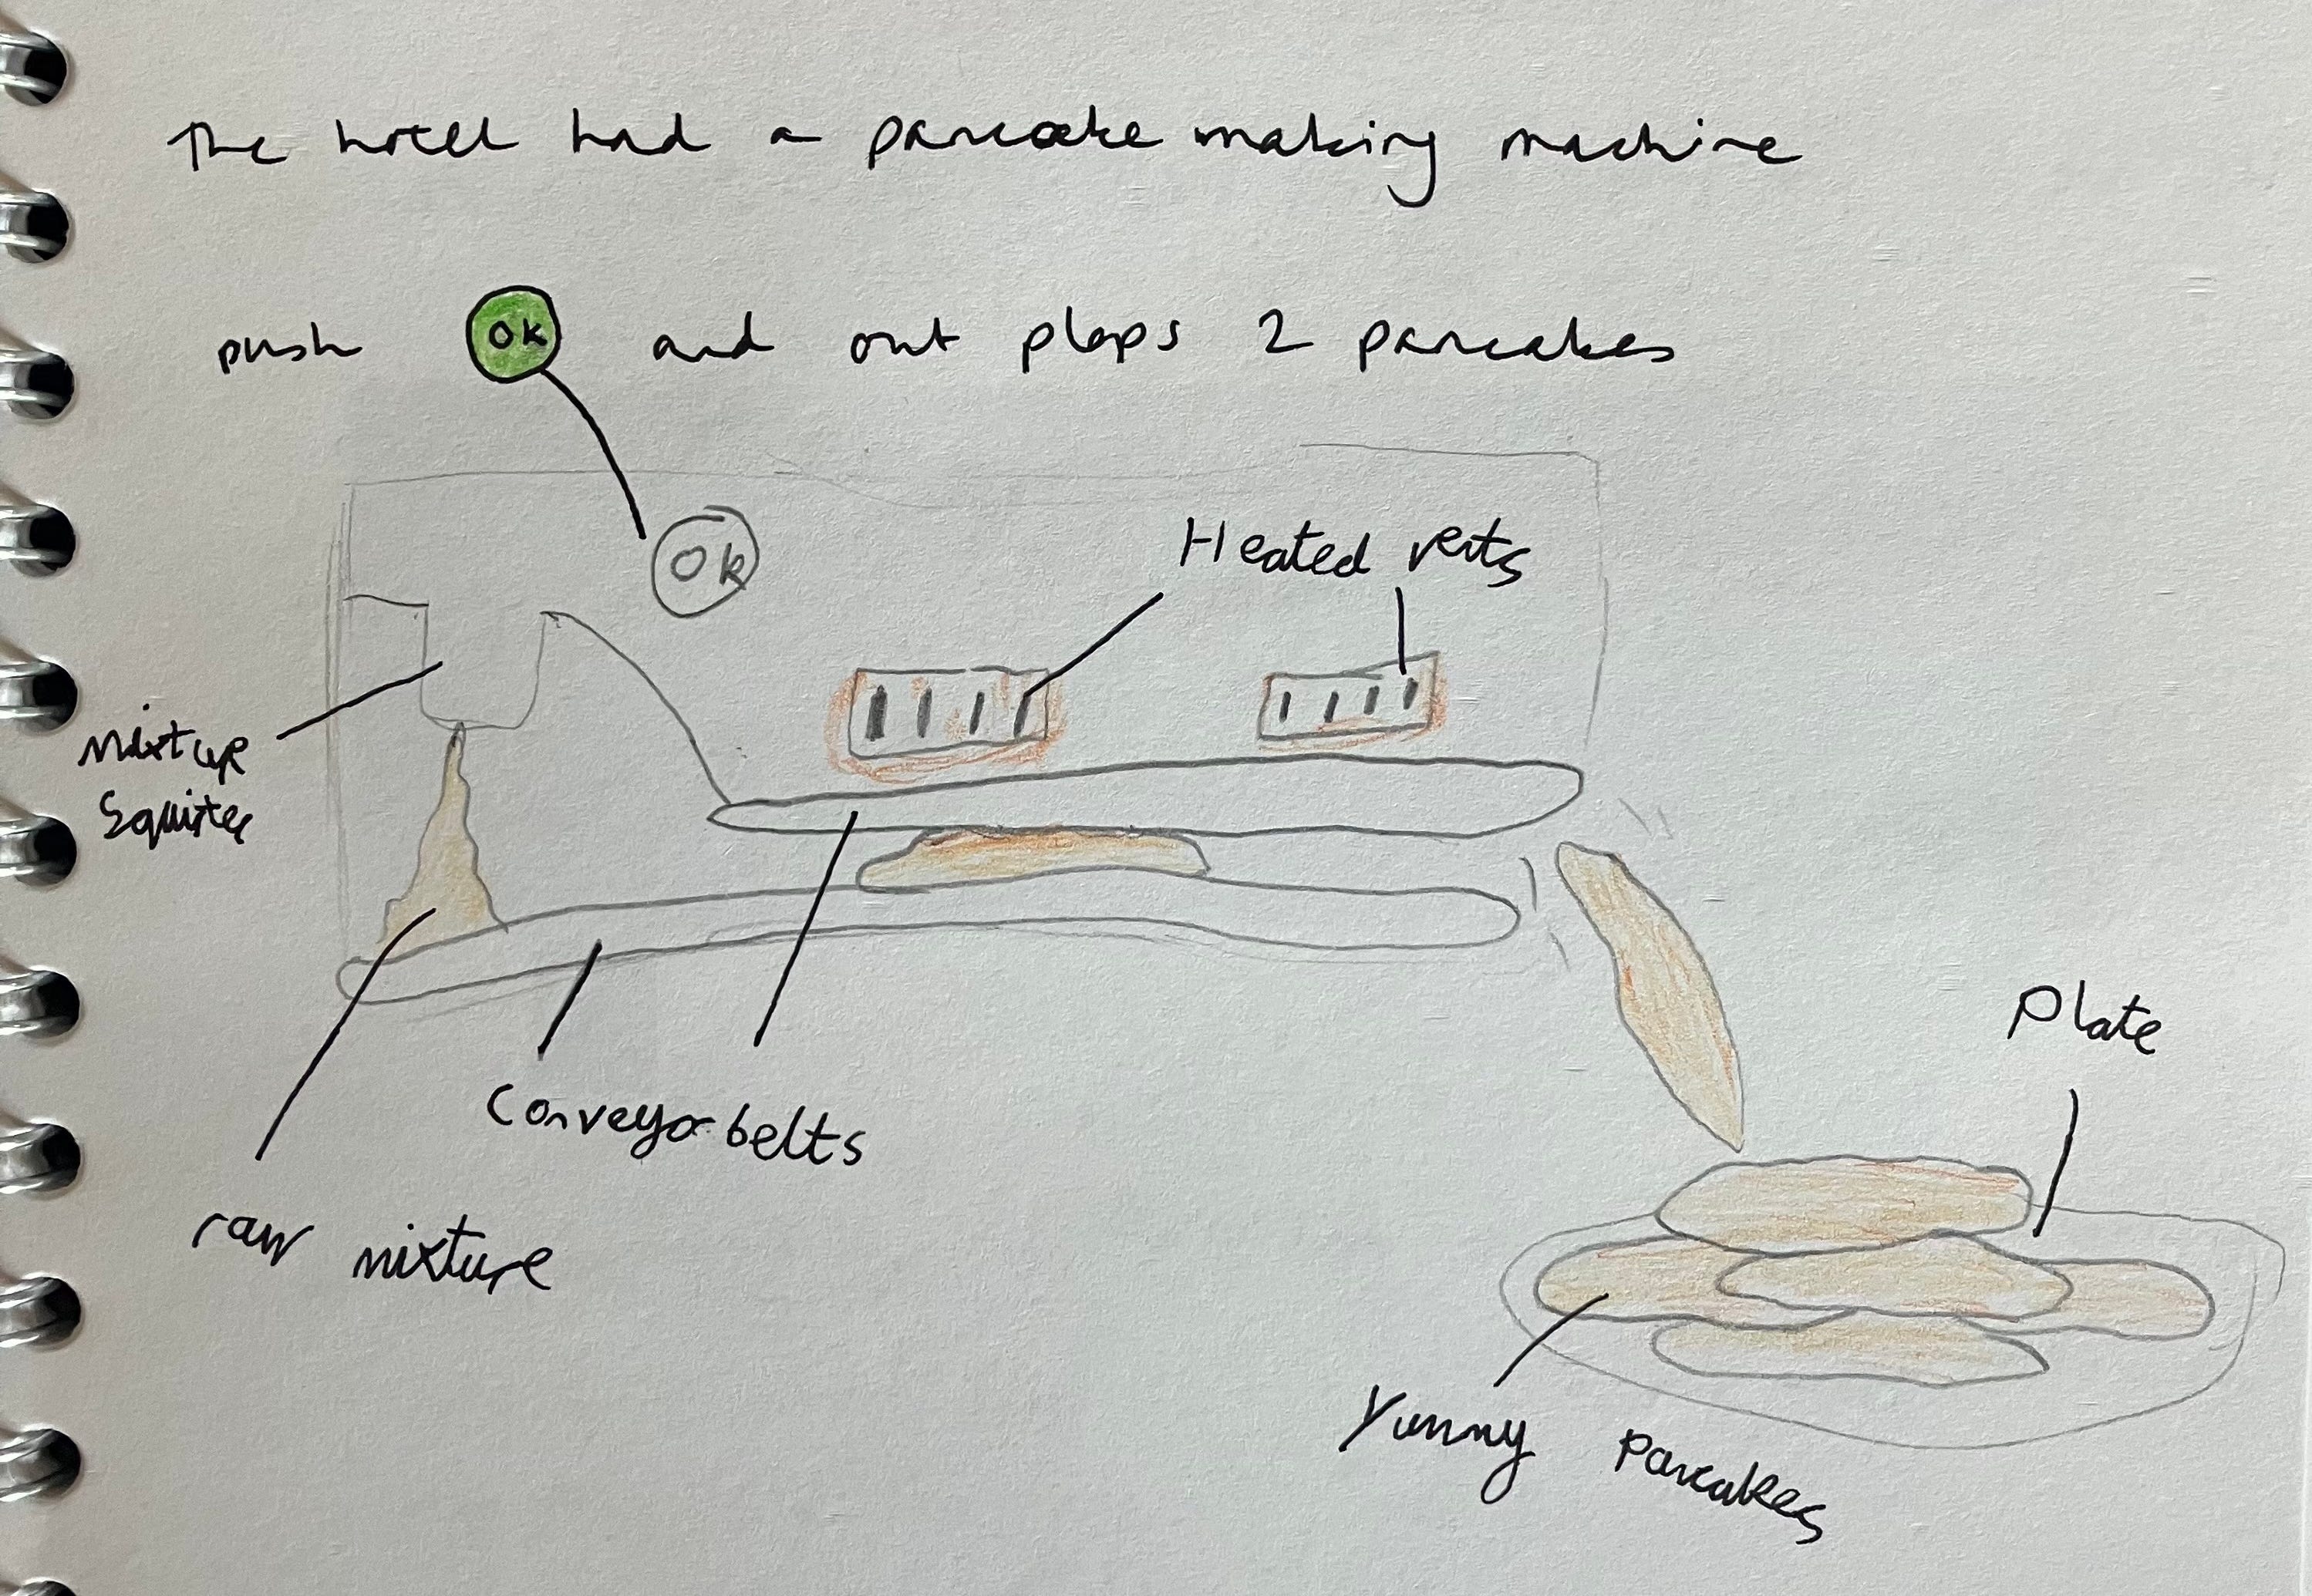 The hotel had a pancake making machine
push OK and out plops 2 pancakes
OK
Heated vents
Mixture
Squirter
Plate
Conveyor belts
raw mixture
Yummy Pancakes